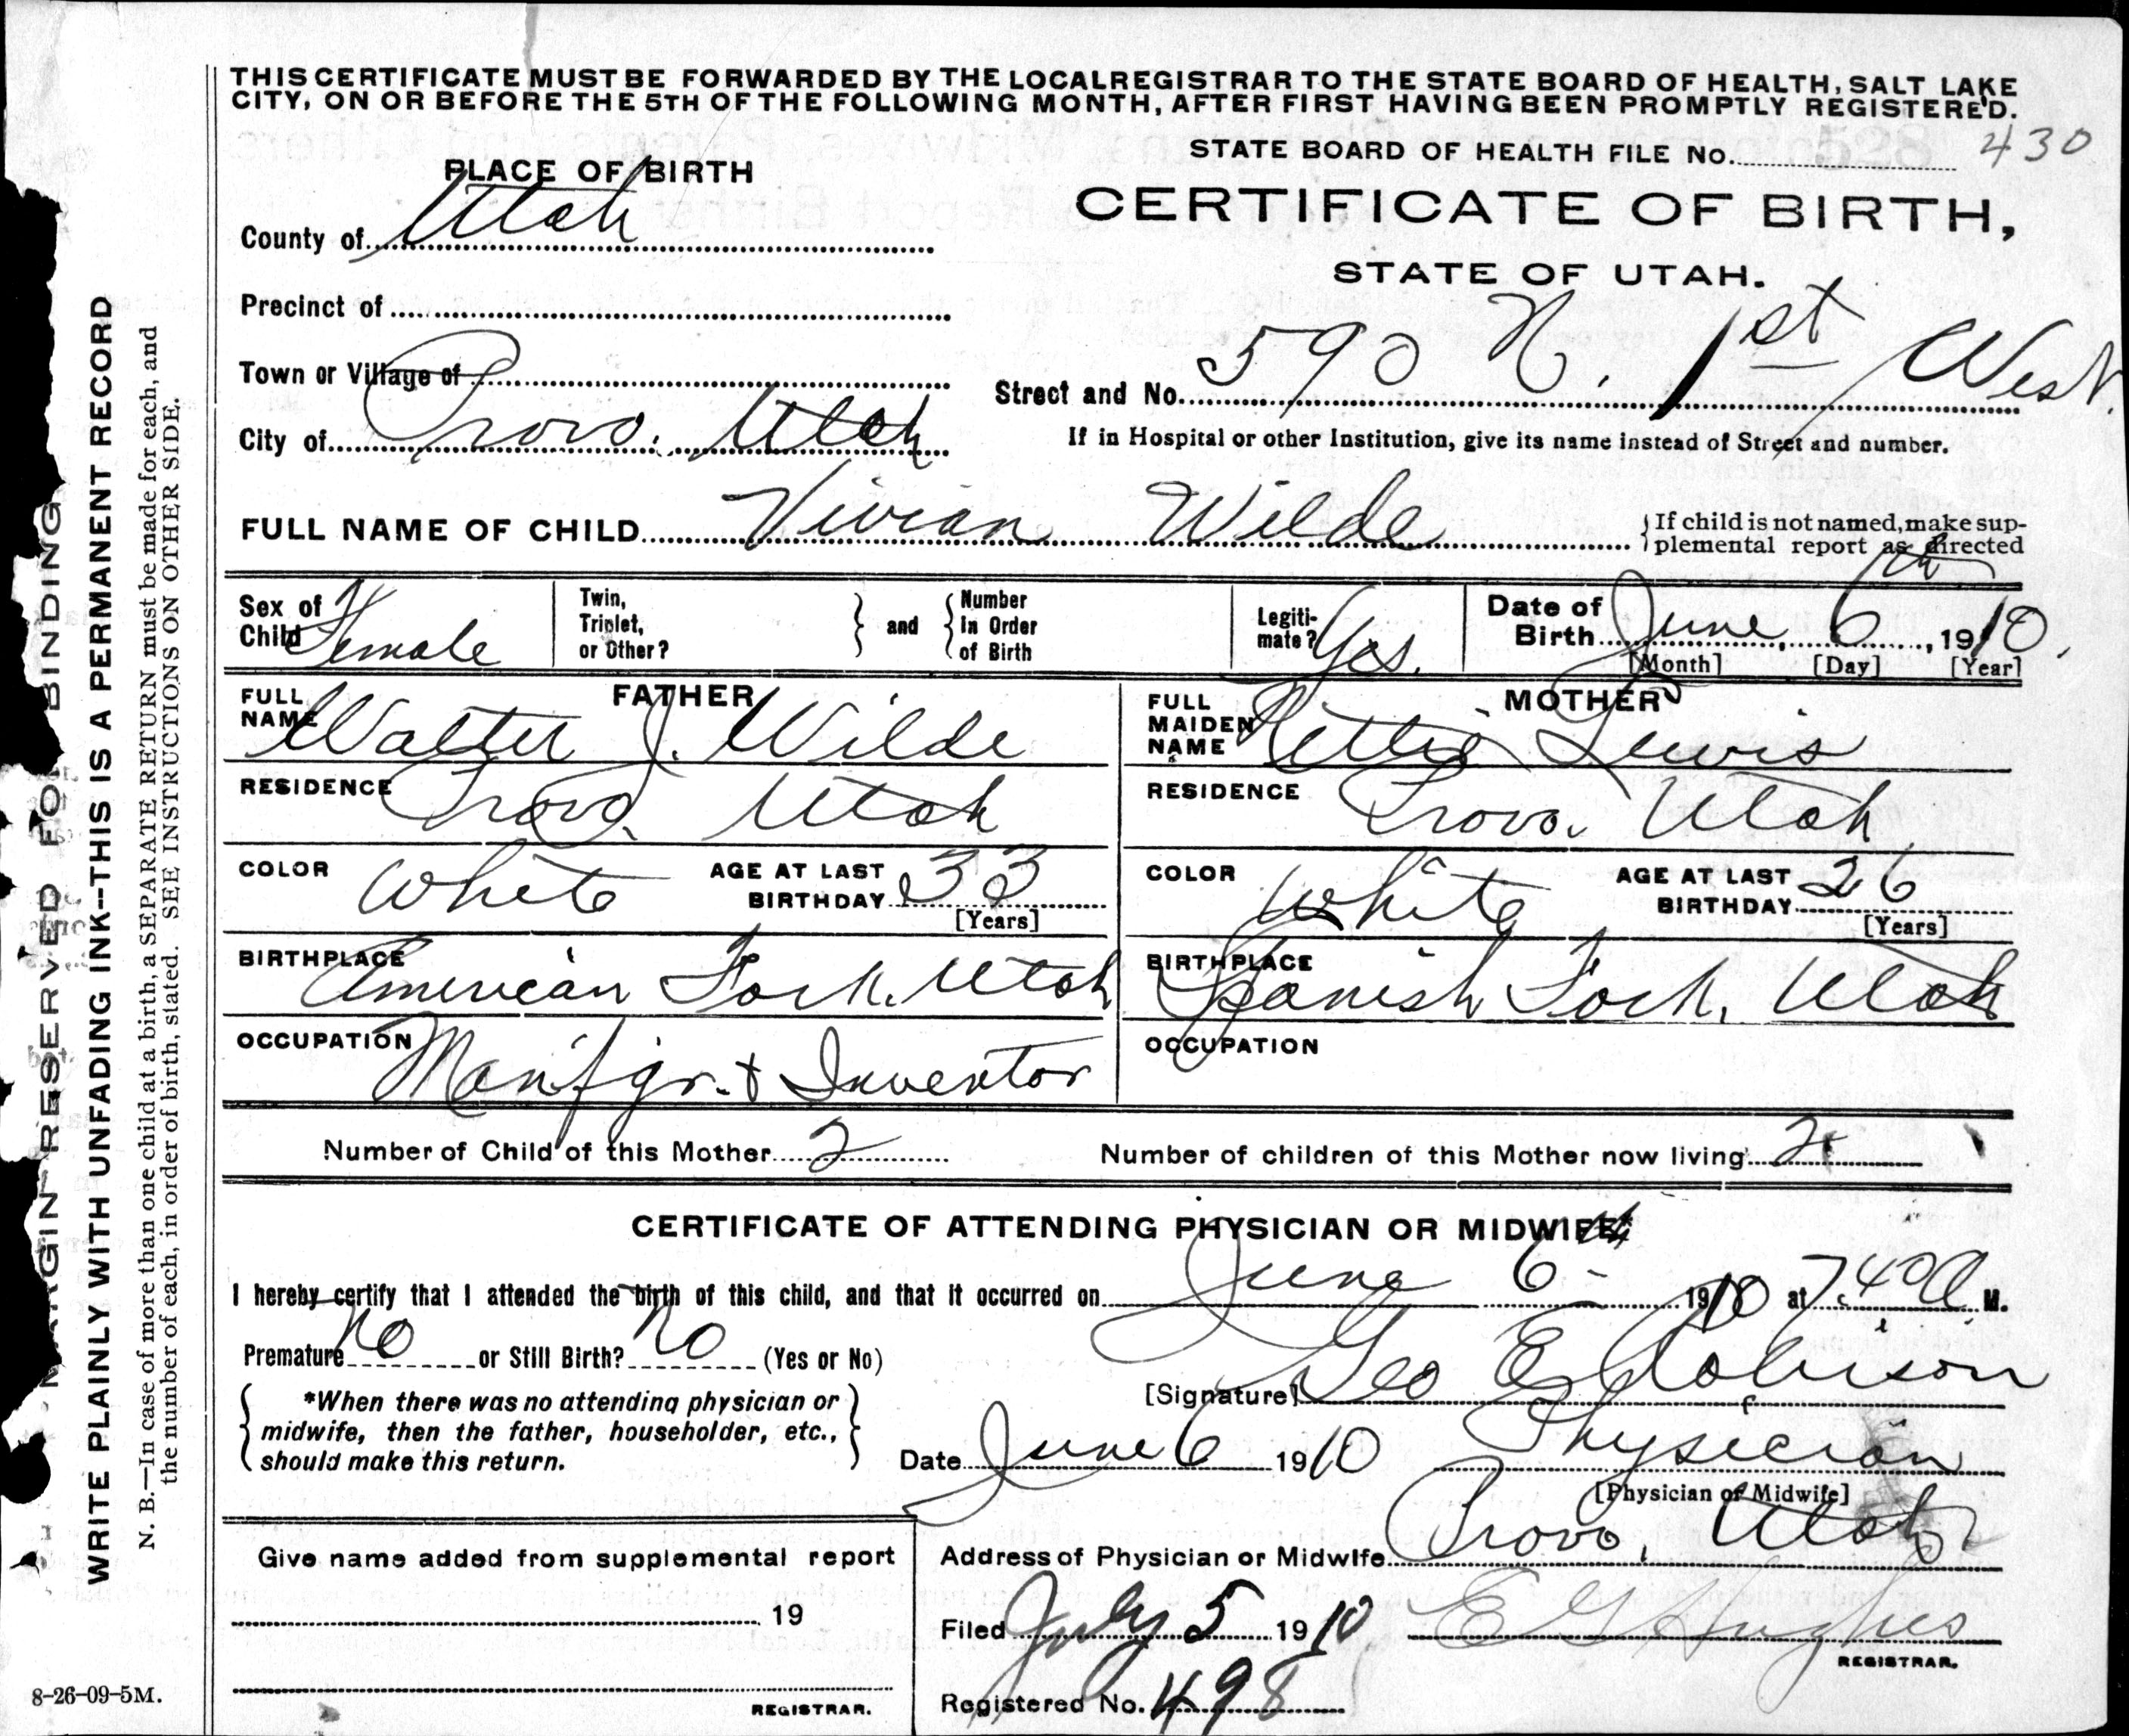 THIS CERTIFICATE MUST BE FORWARDED BY THE LOCAL REGISTRAR TO THE STATE BOARD OF HEALTH, SALT LAKE
CITY, ON OR BEFORE THE 5TH OF THE FOLLOWING MONTH, AFTER FIRST HAVING BEEN PROMPTLY REGISTERED.
STATE BOARD OF HEALTH FILE No. 430
PLACE OF BIRTH
CERTIFICATE OF BIRTH,
STATE OF UTAH.
County of Utah
Precinct of
Town or Village of
Street and No. 590 N. 1st West.
City of Provo. Utah
If in Hospital or other Institution, give its name instead of Street and number.
FULL NAME OF CHILD Vivian Wilde
{If child is not named, make sup-
plemental report as directed
Sex of Child Female
Twin, Triplet, or Other? } and { Number In Order of Birth
Legiti-mate? Yes.
Date of Birth June, 6th, 1910.
[Month] [Day] [Year]
FATHER
FULL NAME Walter J. Wilde
RESIDENCE Provo, Utah
COLOR White AGE AT LAST BIRTHDAY 33
[Years]
BIRTHPLACE American Fork. Utah
OCCUPATION Manfgr. & Inventor
MOTHER
FULL MAIDEN NAME Nettie Lewis
RESIDENCE Provo. Utah
COLOR White AGE AT LAST BIRTHDAY 26
[Years]
BIRTHPLACE Spanish Fork, Utah
OCCUPATION
Number of Child of this Mother 2 Number of children of this Mother now living 2
CERTIFICATE OF ATTENDING PHYSICIAN OR MIDWIFE
I hereby certify that I attended the birth of this child, and that it occurred on June 6th 1910 at 7.40 A. M.
Premature No or Still Birth? No (Yes or No)
[Signature] Geo E Robison
{ *When there was no attending physician or
midwife, then the father, householder, etc.,
should make this return. }
Date June 6 1910 Physician
[Physician or Midwife]
Address of Physician or Midwife Provo, Utah
Give name added from supplemental report
19
REGISTRAR.
Filed July 5 1910 E G Hughes
REGISTRAR.
Registered No. 498
8-26-09-5M.
MARGIN RESERVED FOR BINDING
WRITE PLAINLY WITH UNFADING INK--THIS IS A PERMANENT RECORD
N. B.—In case of more than one child at a birth, a SEPARATE RETURN must be made for each, and
the number of each, in order of birth, stated. SEE INSTRUCTIONS ON OTHER SIDE.